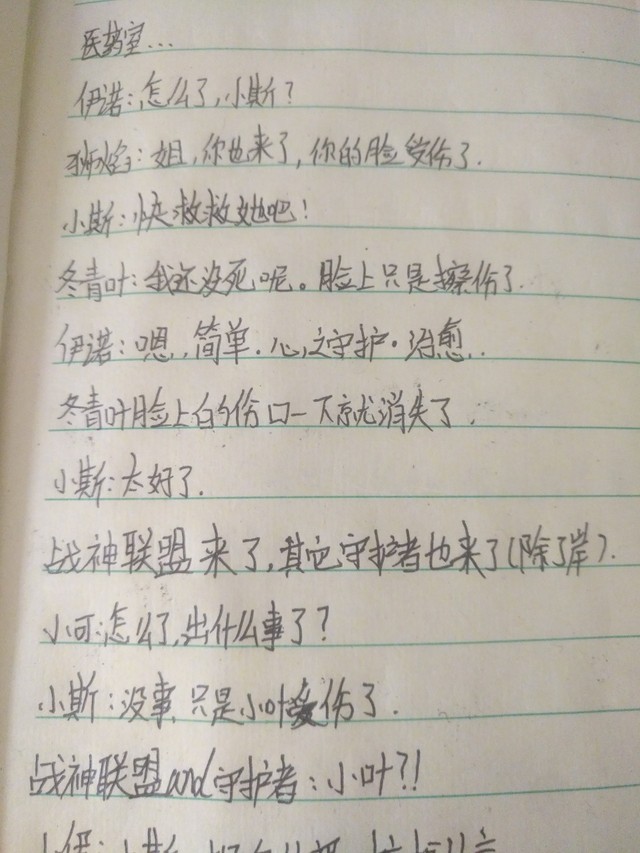 医药室...
伊诺:怎么了,小斯?
狮焰:姐,你也来了,你的脸受伤了.
小斯:快救救她吧!
冬青叶:我还没死呢。脸上只是擦伤了.
伊诺:嗯,简单.心之守护·治愈.
冬青叶脸上的伤口一下就消失了.
小斯:太好了.
战神联盟来了,其它守护者也来了(除了岸).
小可:怎么了,出什么事了?
小斯:没事,只是小叶受伤了.
战神联盟and守护者:小叶?!
小伊:小斯